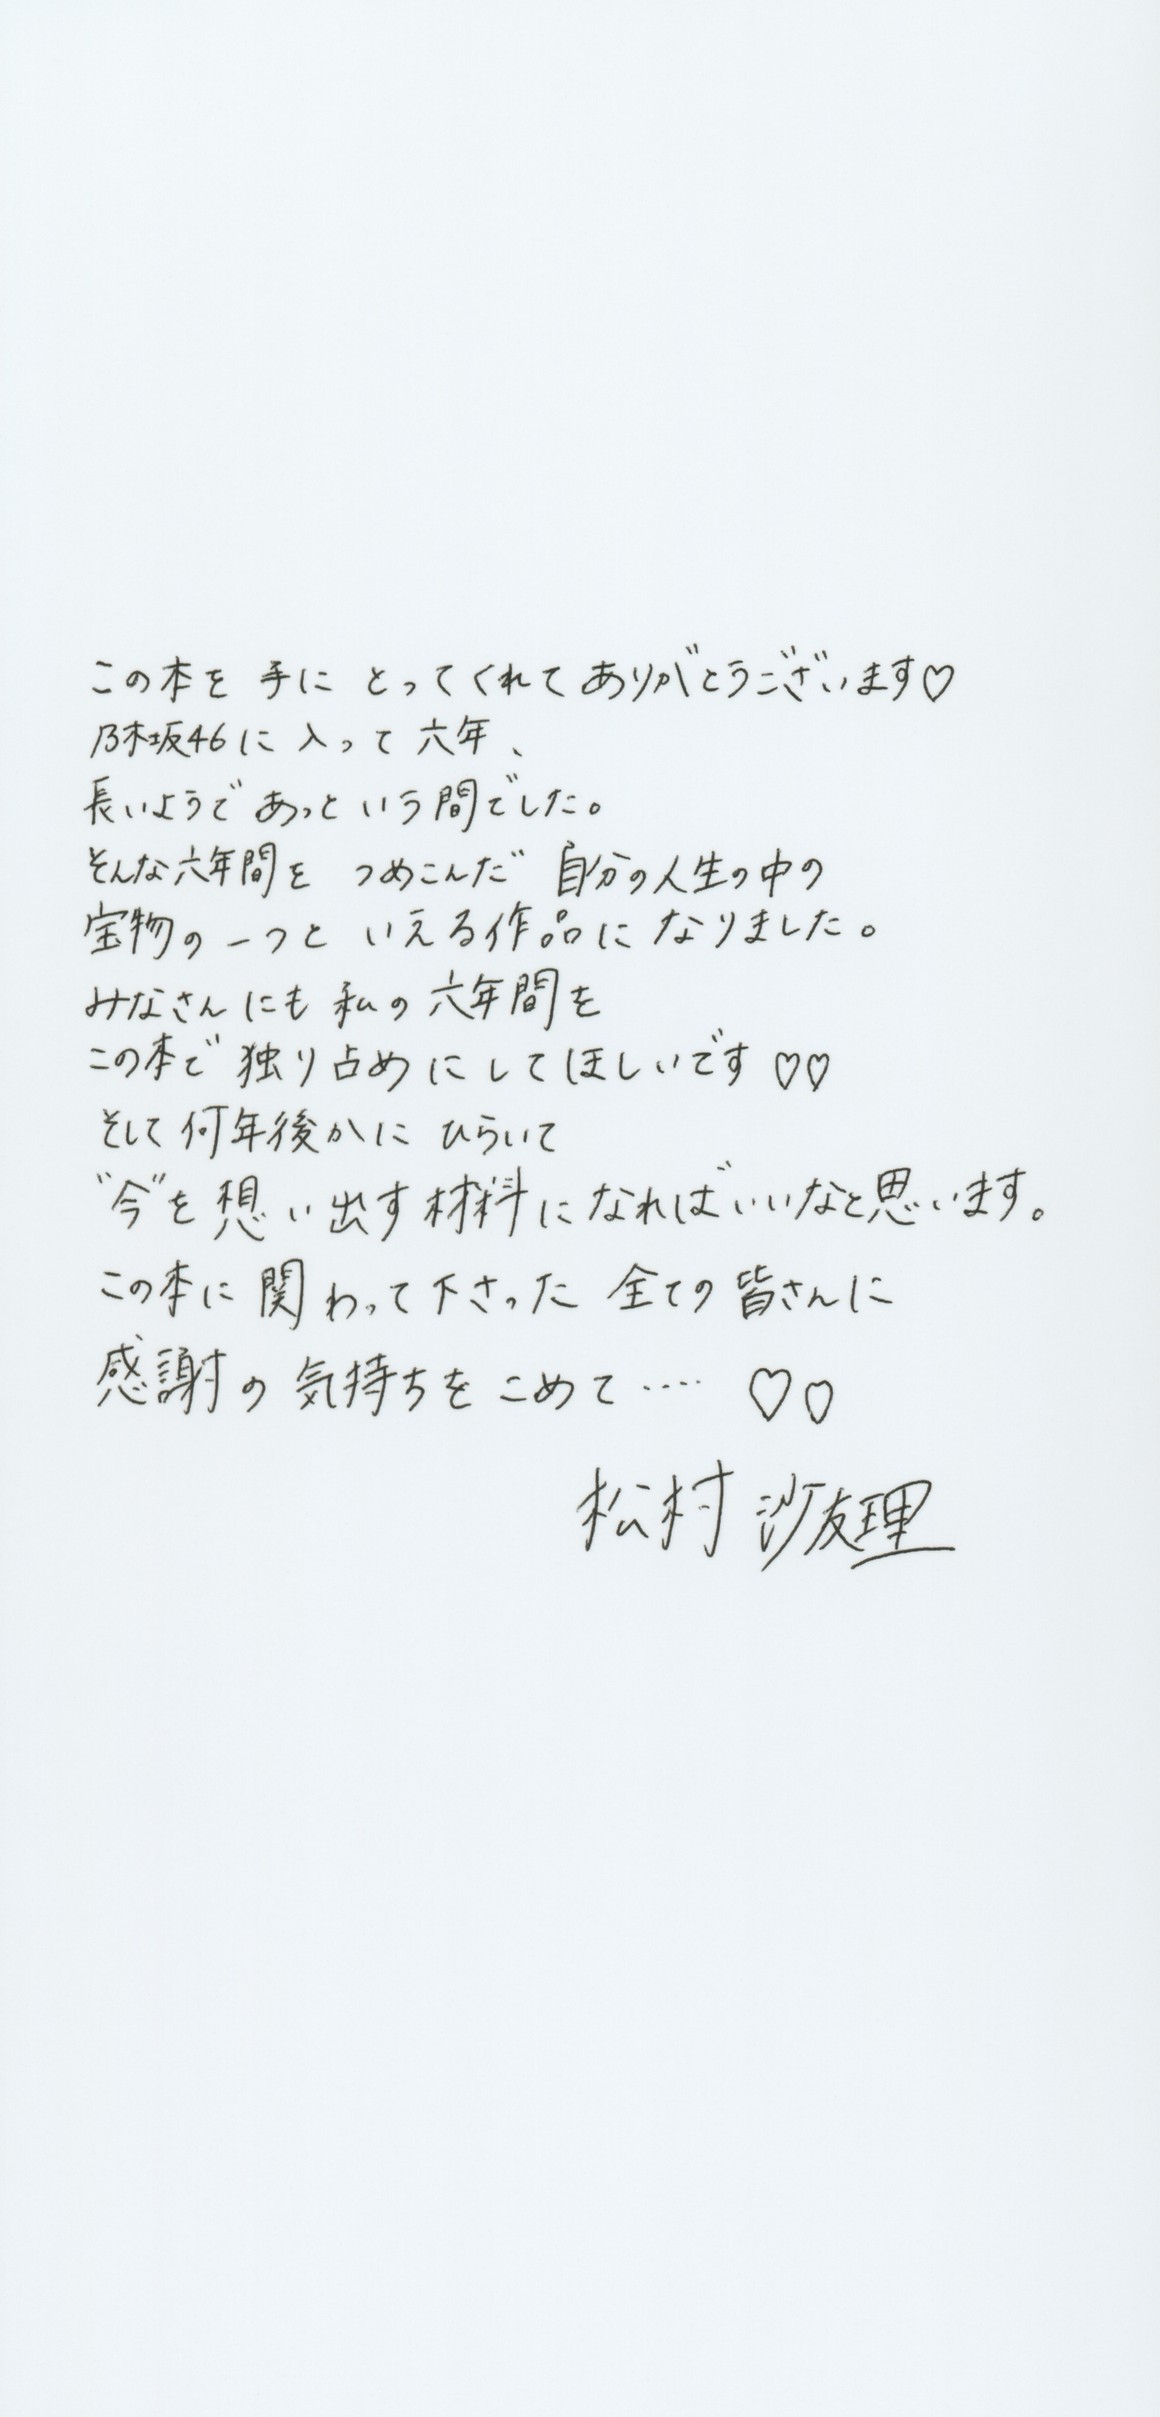 この本を手にとってくれてありがとうございます♡
乃木坂46に入って六年、
長いようであっという間でした。
そんな六年間をつめこんだ自分の人生の中の
宝物の一つといえる作品になりました。
みなさんにも私の六年間を
この本で独り占めにしてほしいです♡♡
そして何年後かにひらいて
"今"を想い出す材料になればいいなと思います。
この本に関わって下さった全ての皆さんに
感謝の気持ちをこめて‥‥ ♡♡
松村 沙友理